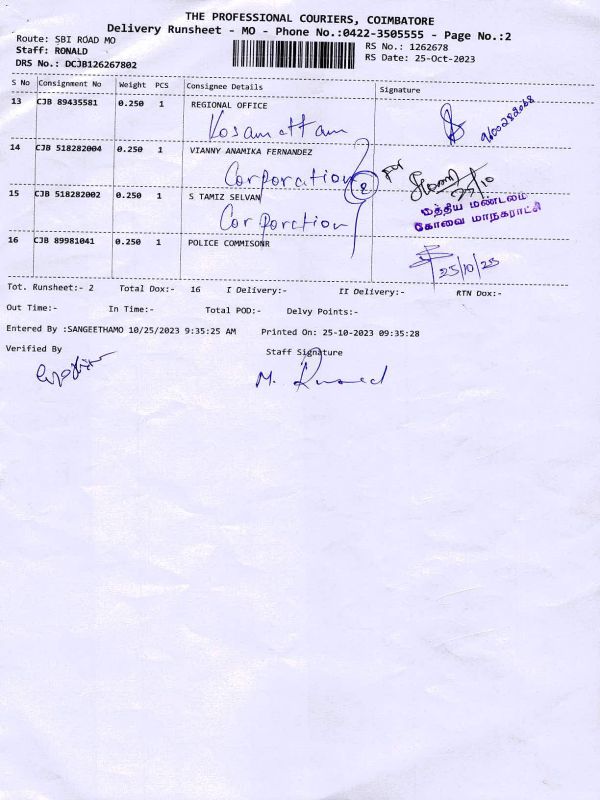 THE PROFESSIONAL COURIERS, COIMBATORE
Delivery Runsheet - MO - Phone No.:0422-3505555 - Page No.:2
Route: SBI ROAD MO
RS No.: 1262678
Staff: RONALD
RS Date: 25-Oct-2023
DRS No.: DCJB126267802
S No Consignment No Weight PCS Consignee Details Signature
13 CJB 89435581 0.250 1 REGIONAL OFFICE
Kosamattam
14 CJB 518282004 0.250 1 VIANNY ANAMIKA FERNANDEZ
Corporation
2
for
15 CJB 518282002 0.250 1 S TAMIZ SELVAN
Corporction
மத்திய மண்டலம்
கோவை மாநகராட்சி
16 CJB 89981041 0.250 1 POLICE COMMISONR
25/10/23
Tot. Runsheet:- 2 Total Dox:- 16 I Delivery:- II Delivery:- RTN Dox:-
Out Time:- In Time:- Total POD:- Delvy Points:-
Entered By :SANGEETHAMO 10/25/2023 9:35:25 AM Printed On: 25-10-2023 09:35:28
Verified By Staff Signature
M.